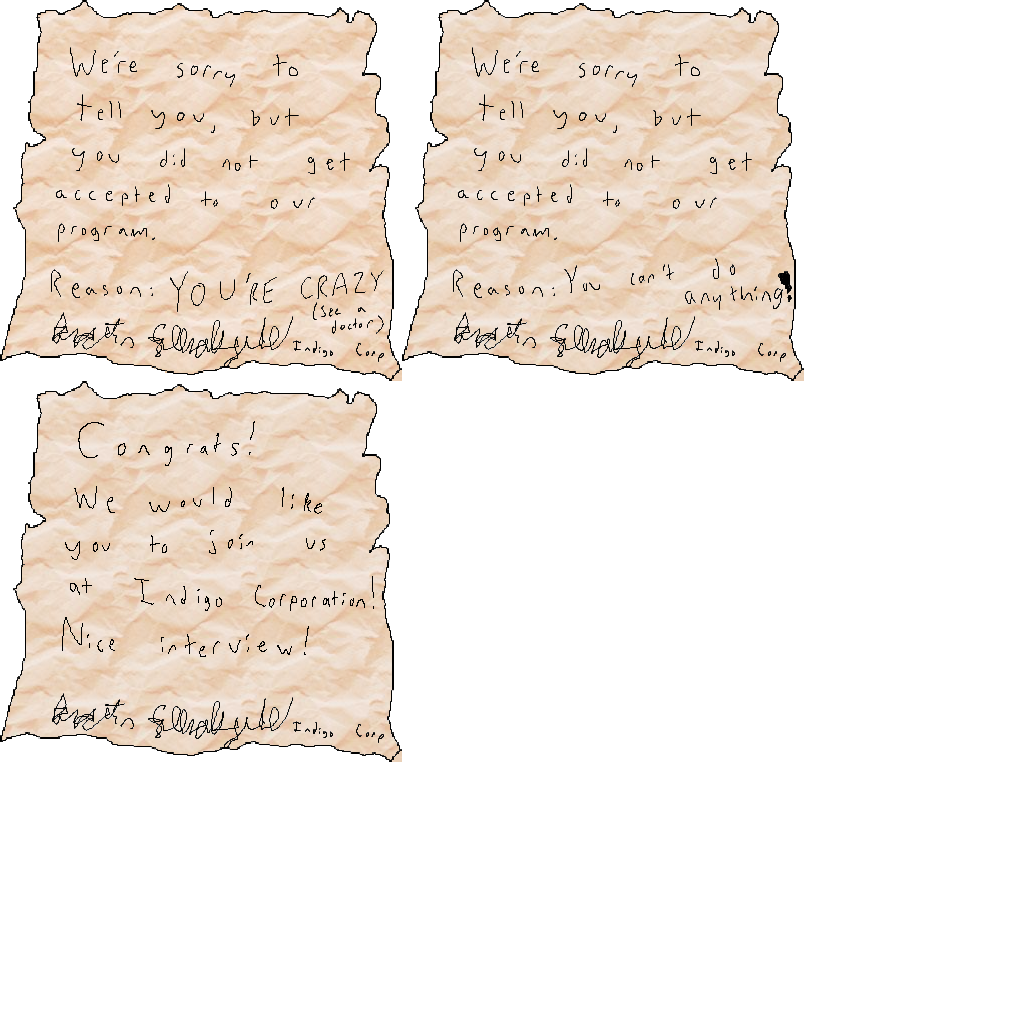 We're sorry to
tell you, but
you did not get
accepted to our
program.
Reason: YOU'RE CRAZY
(see a
doctor)
Indigo Corp
We're sorry to
tell you, but
you did not get
accepted to our
program.
Reason: You can't do
anything!
Indigo Corp
Congrats!
We would like
you to join us
at Indigo Corporation!
Nice interview!
Indigo Corp